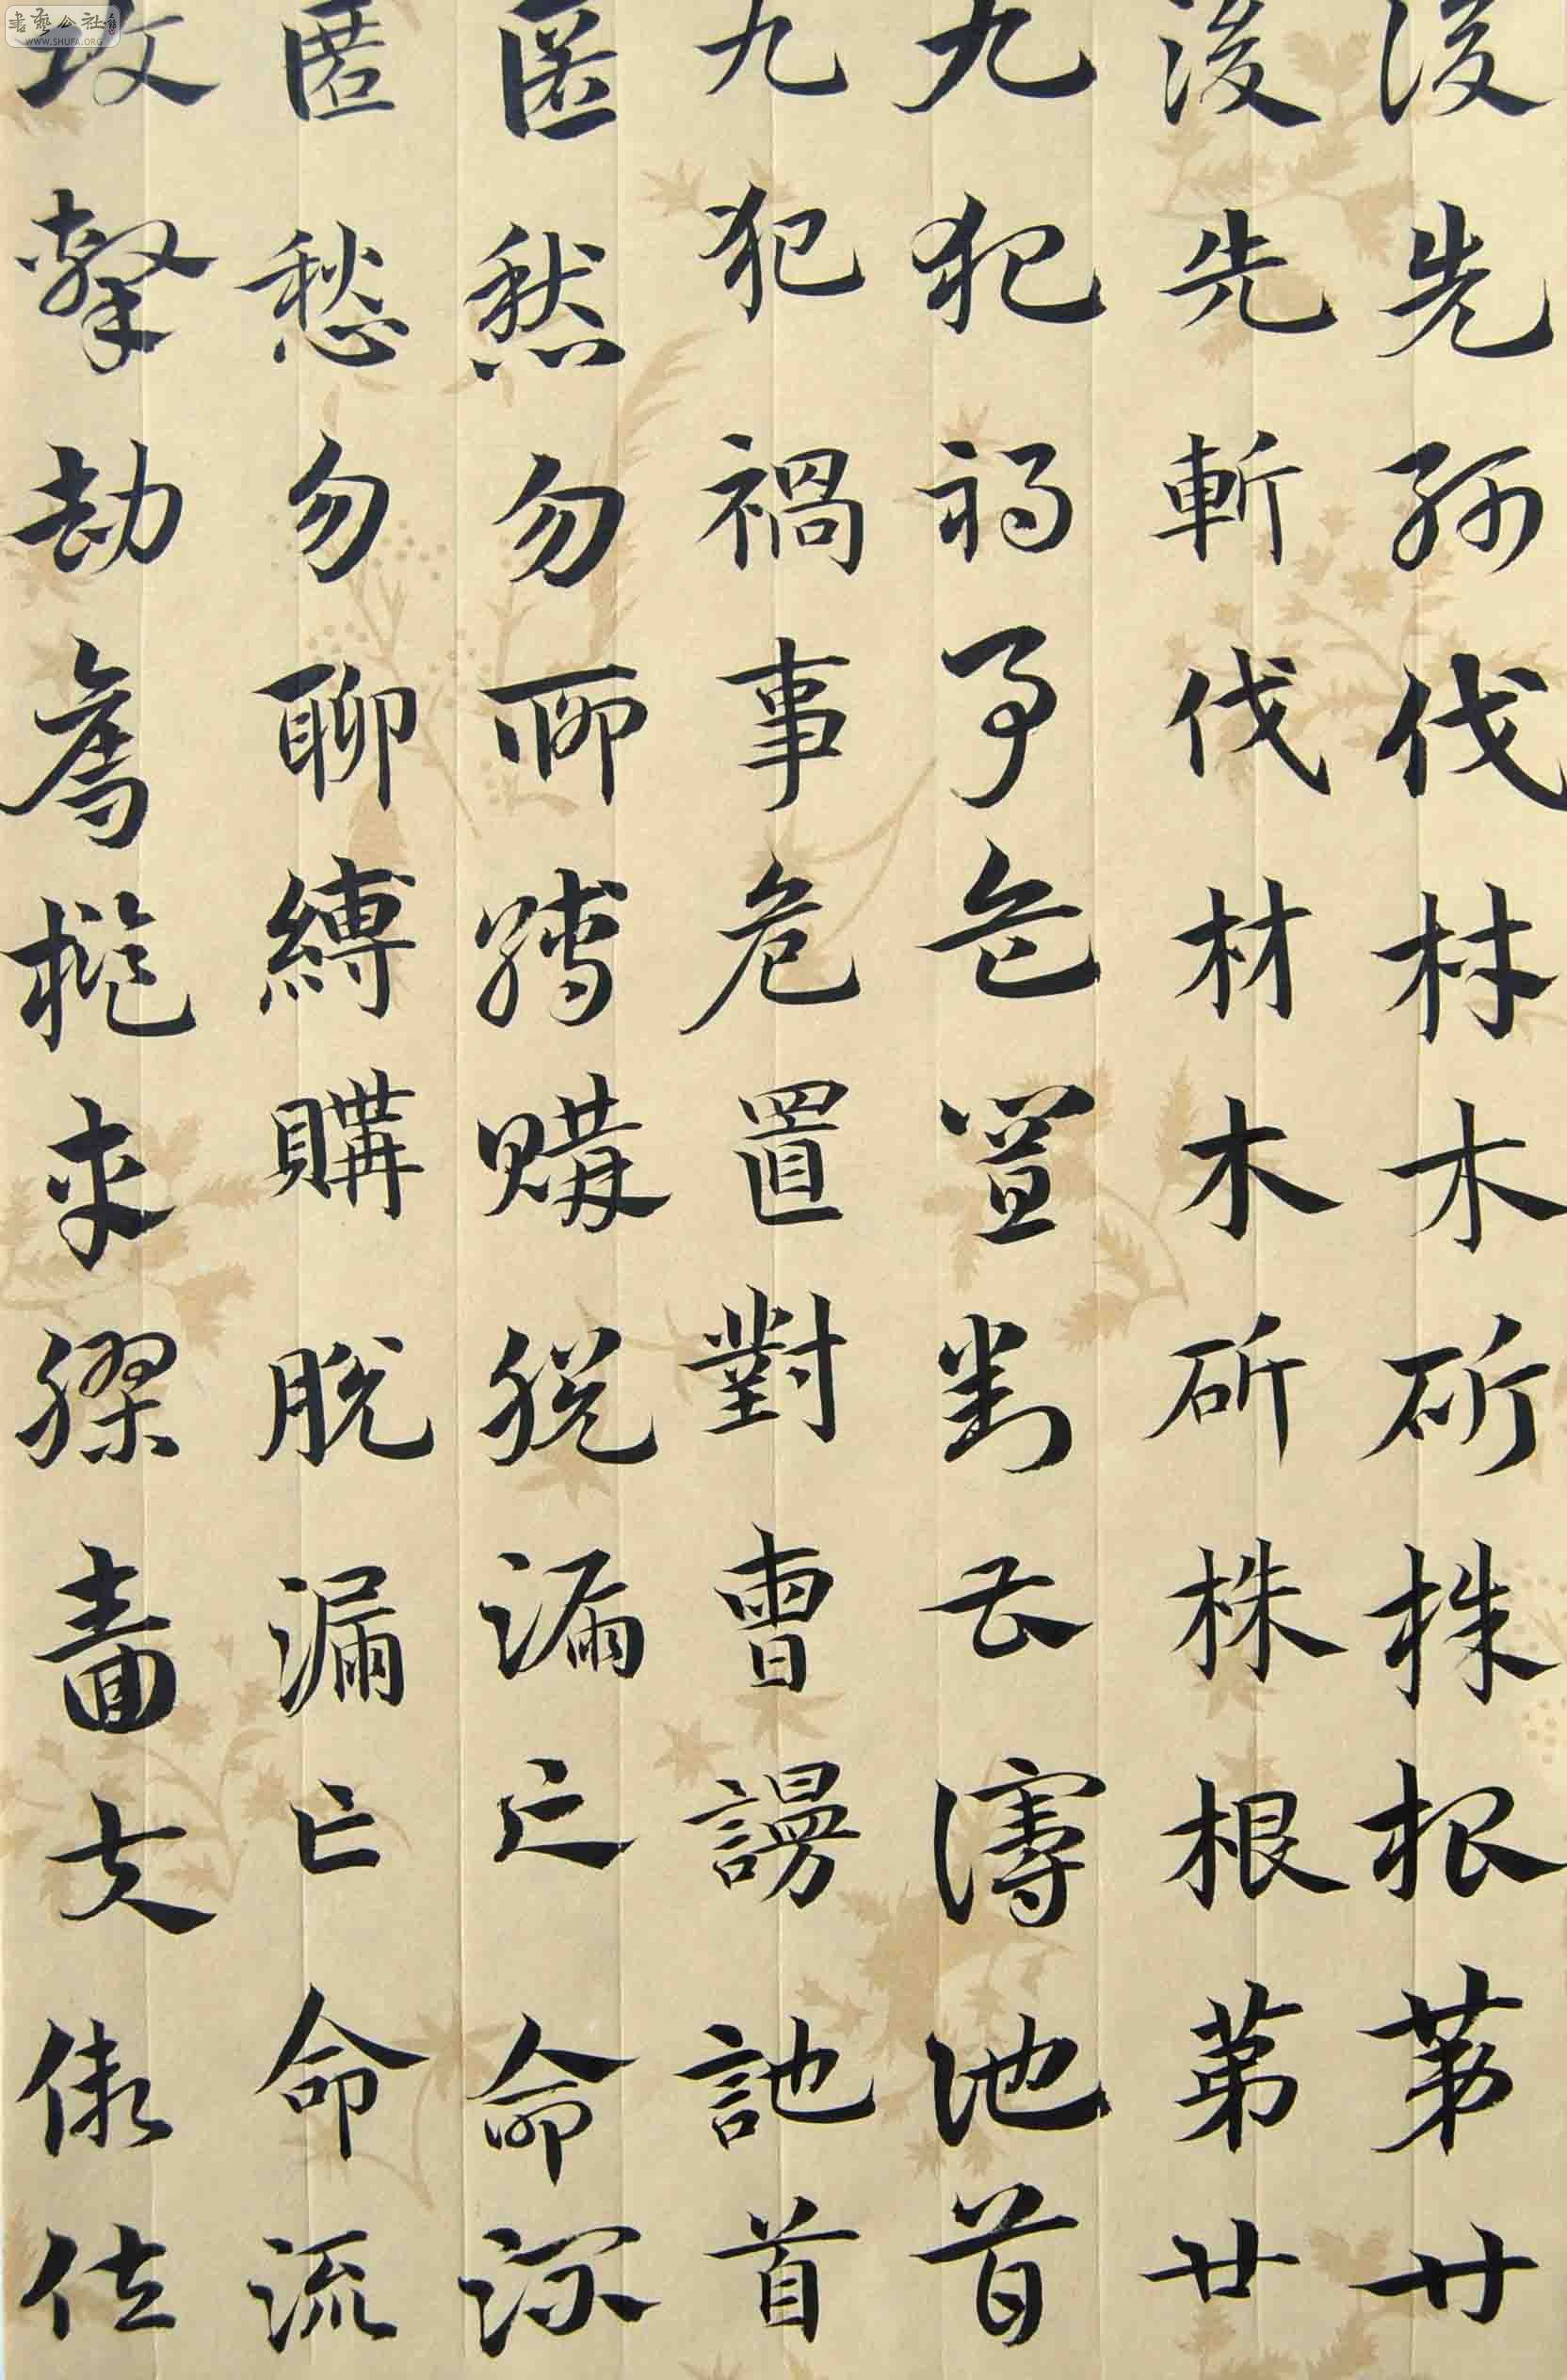 後先斬伐材木斫株根第廿
後先斬伐材木斫株根第廿
九犯禍事危置對曹謾訑首
九犯禍事危置對曹謾訑首
匿愁勿聊縛購脫漏亡命流
匿愁勿聊縛購脫漏亡命流
攻擊劫奪檻車膠嗇夫假佐
書藝公社
WWW.SHUFA.ORG